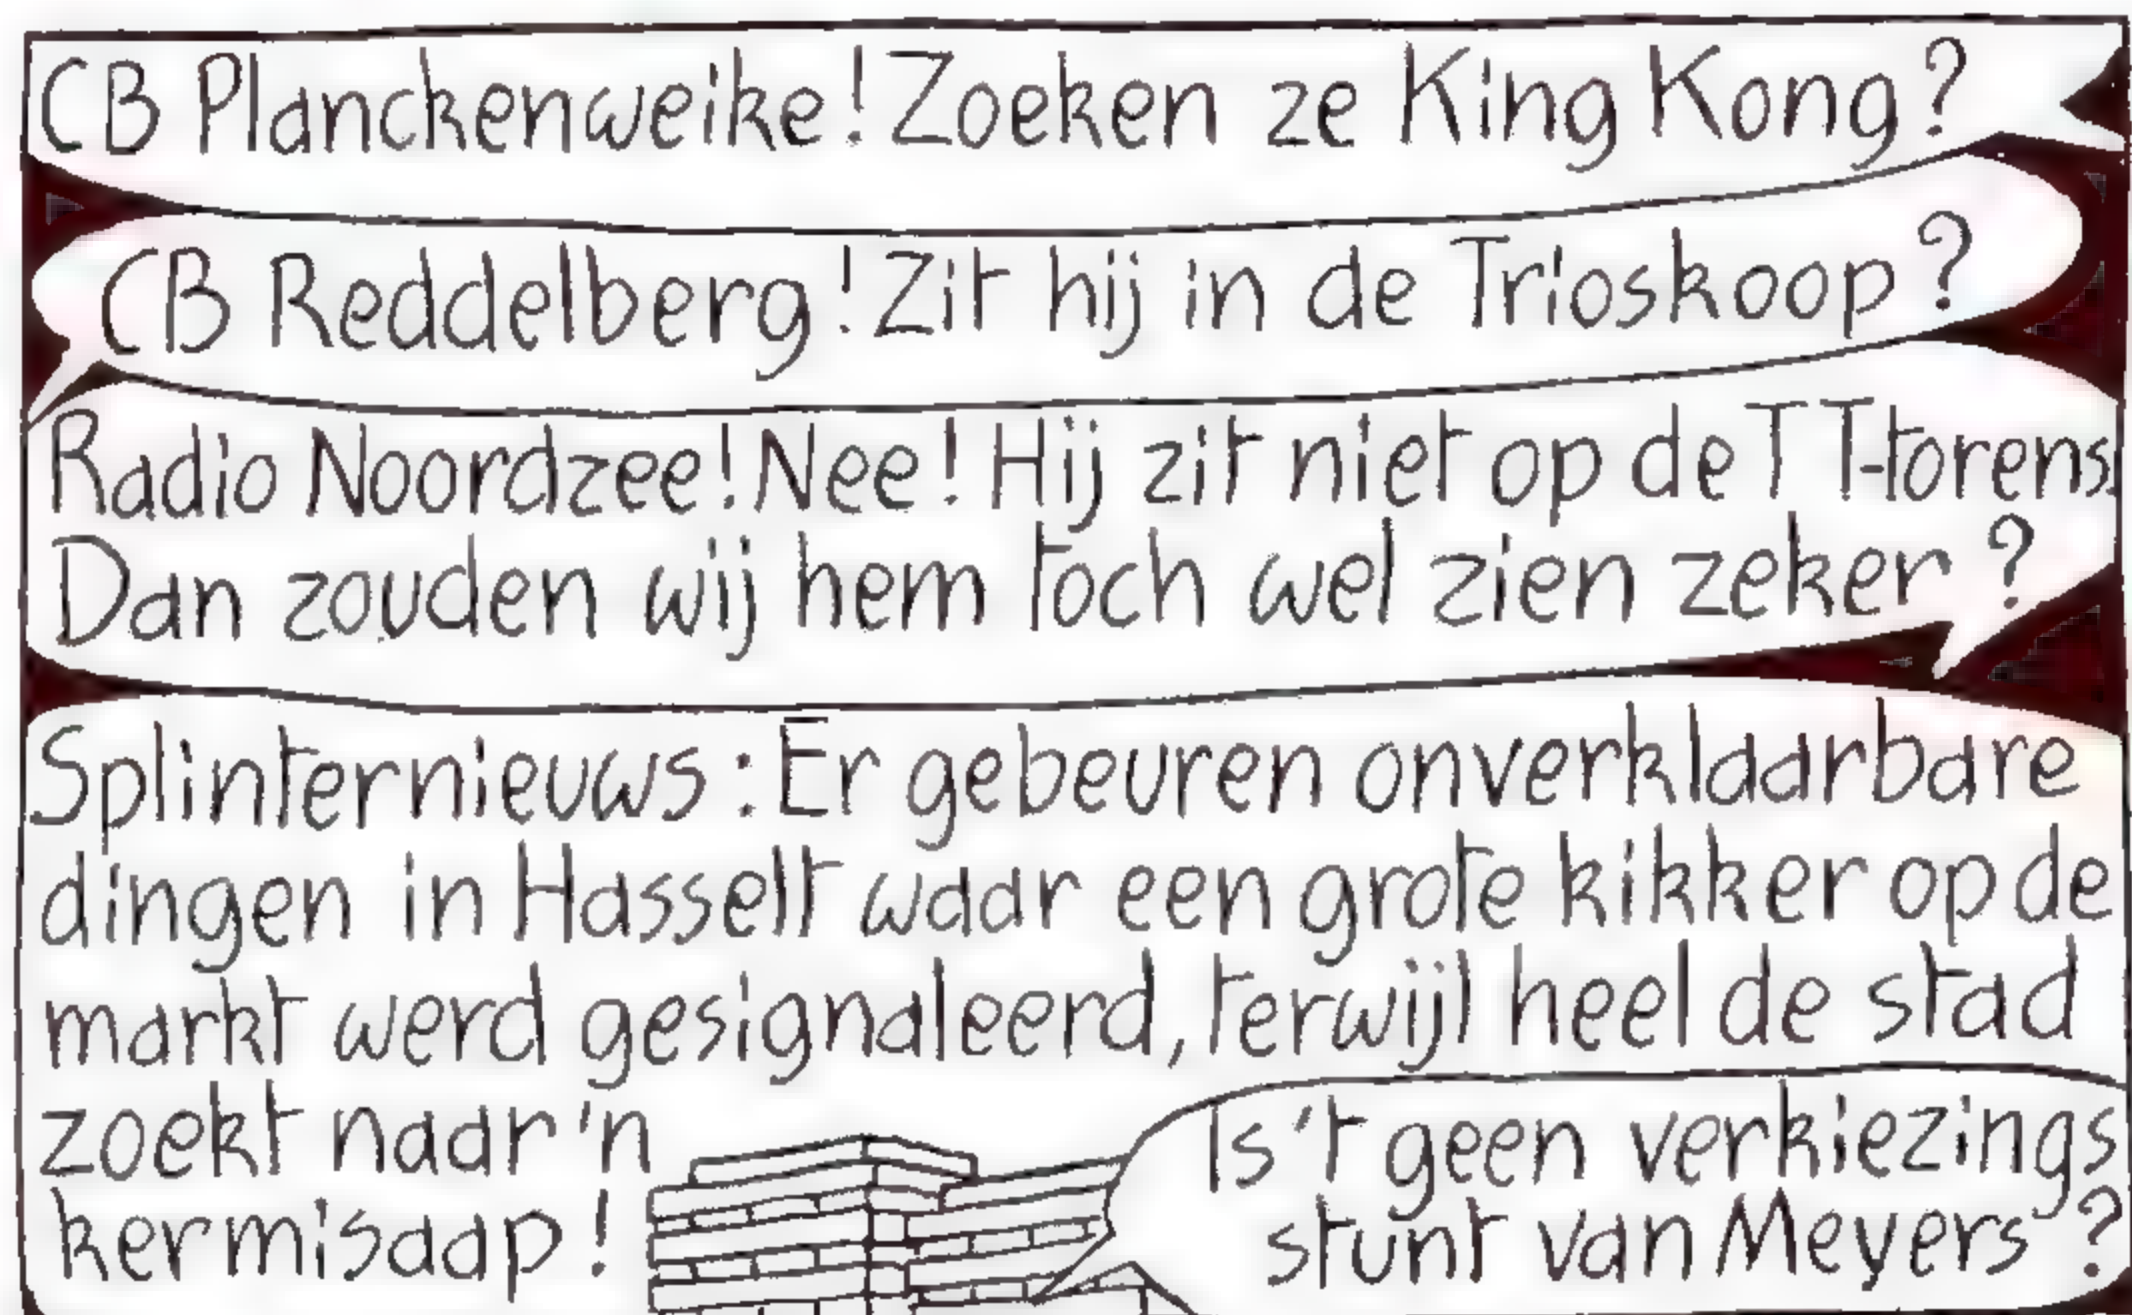 CB Planckenweike! Zoeken ze King Kong?
CB Reddelberg! Zit hij in de Trioskoop?
Radio Noordzee! Nee! Hij zit niet op de TT-torens.
Dan zouden wij hem toch wel zien zeker?
Splinternieuws: Er gebeuren onverklaarbare
dingen in Hasselt waar een grote kikker op de
markt werd gesignaleerd, terwijl heel de stad
zoekt naar 'n
kermisaap!
Is 't geen verkiezings
stunt van Meyers?